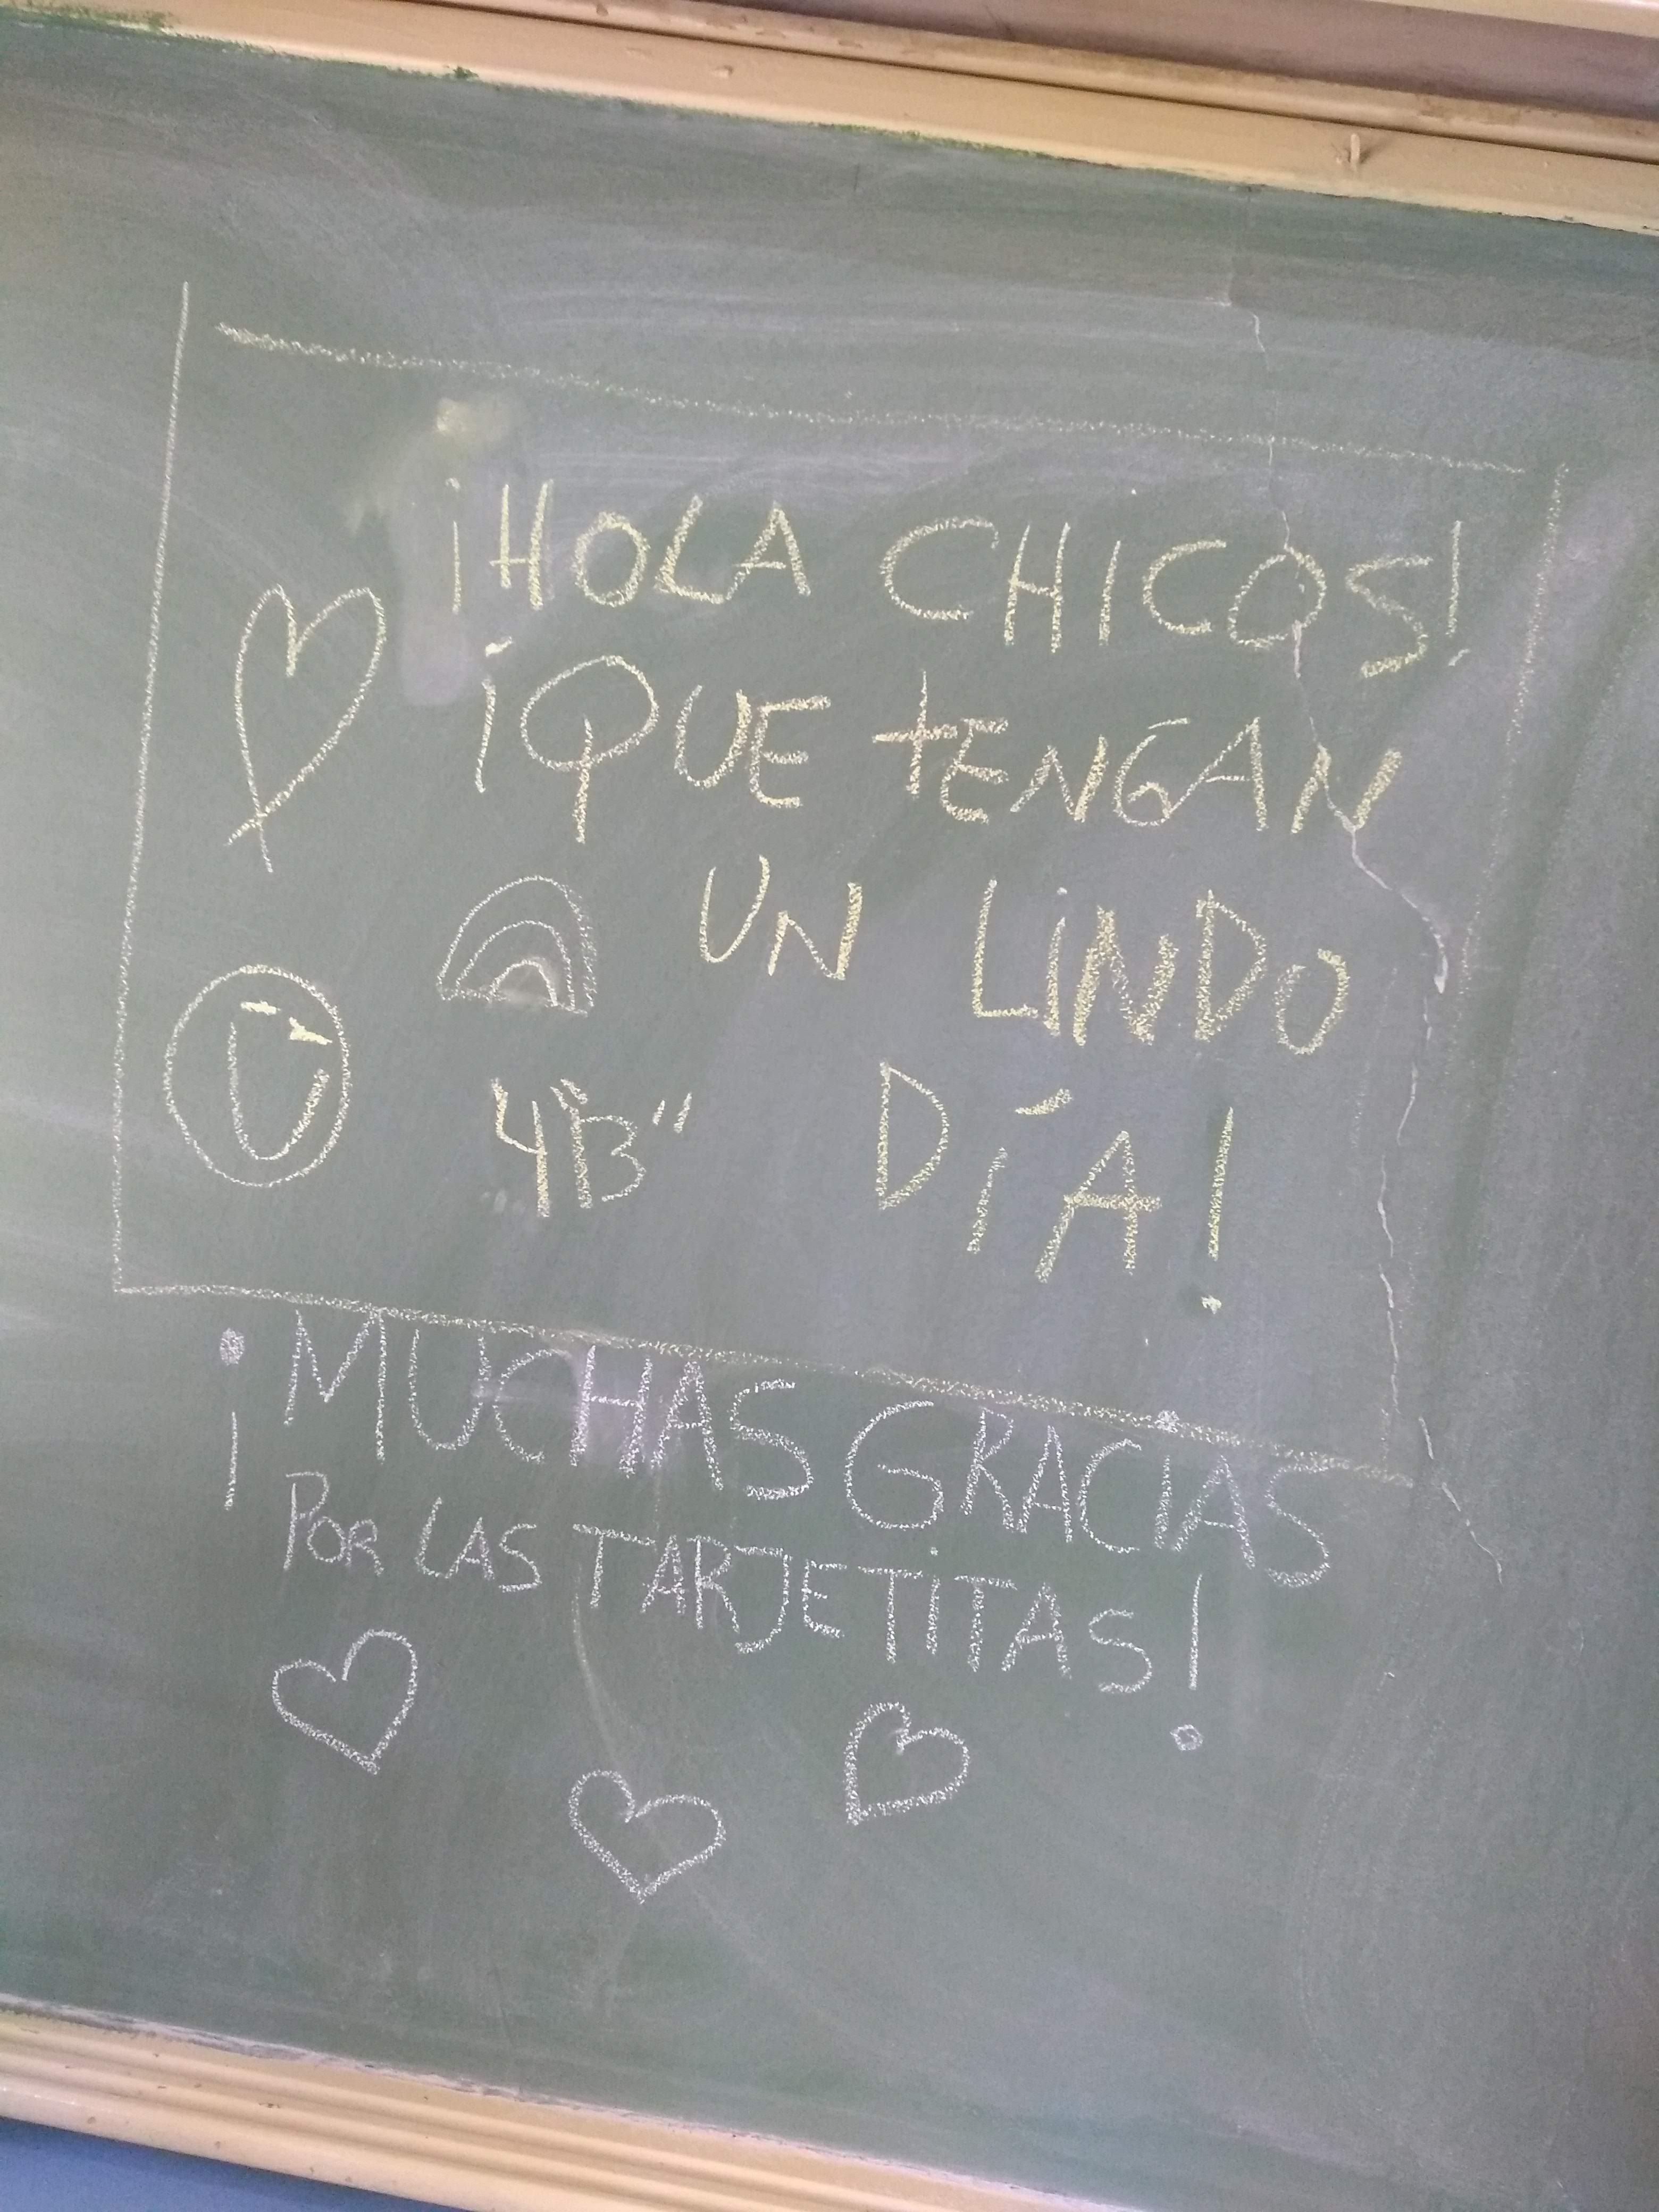 ¡HOLA CHICOS!
¡QUE tENGAN
UN LiNDO
4"B" DíA!
¡MUCHAS GRACiAS
POR LAS TARJETiTAS!